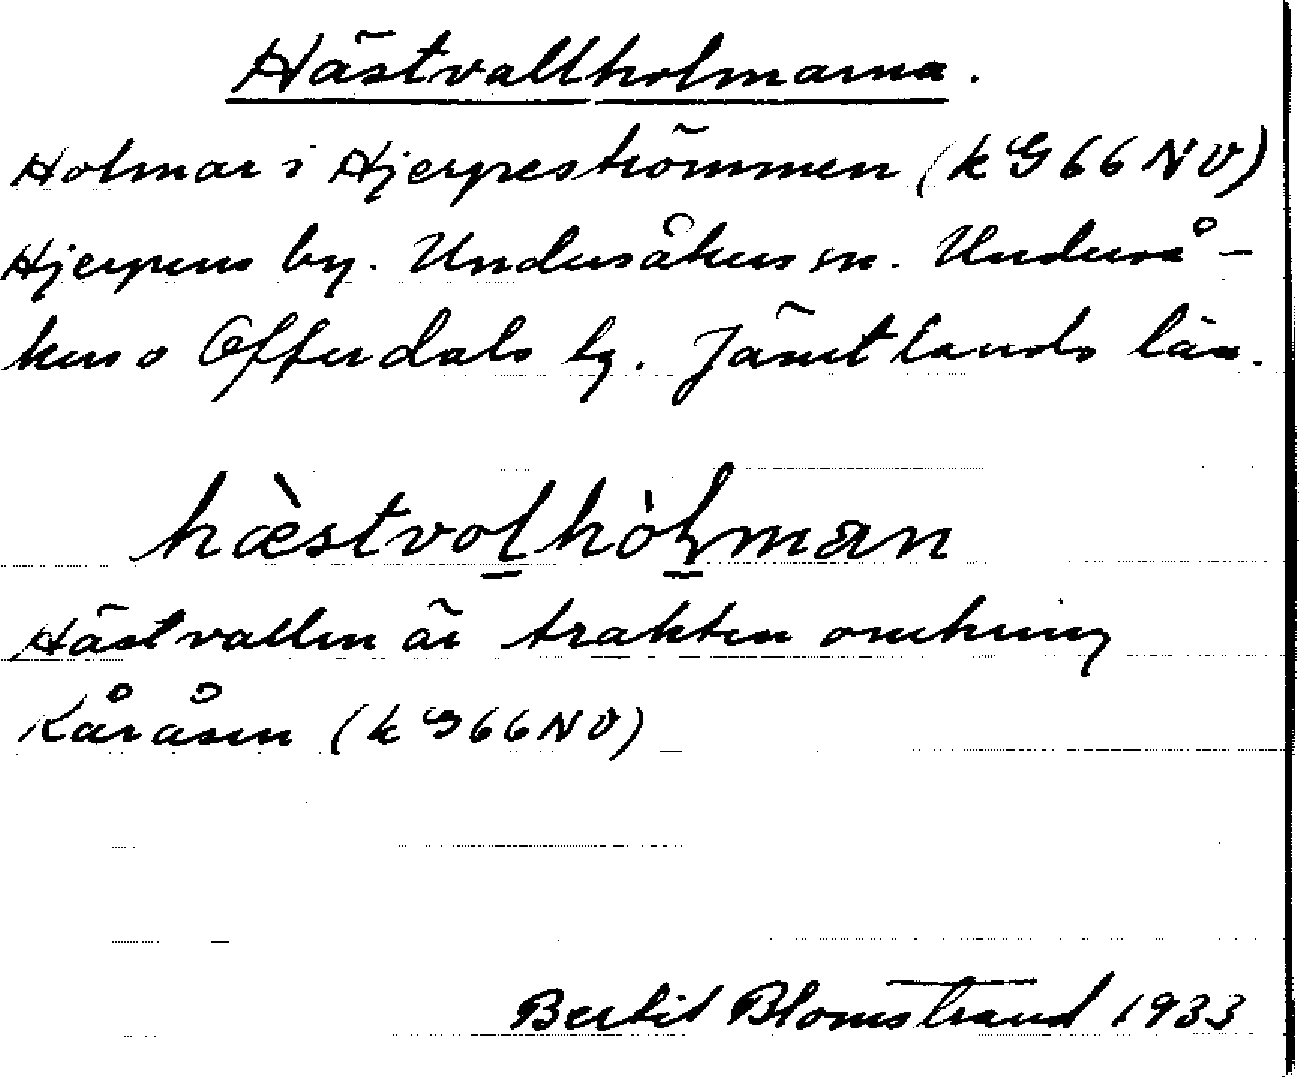 Hästvallholmarna.
Holmar i Hjerpeströmmen (k G 66 NV)
Hjerpens by. Undersåkers sn. Underså-
kers o Offerdals tg. Jämtlands län.
hæ̀stvoḷhòḷman
Hästvallen är trakten omkring
Kåråsen (k G 66 NV)
Bertil Blomstrand 1933